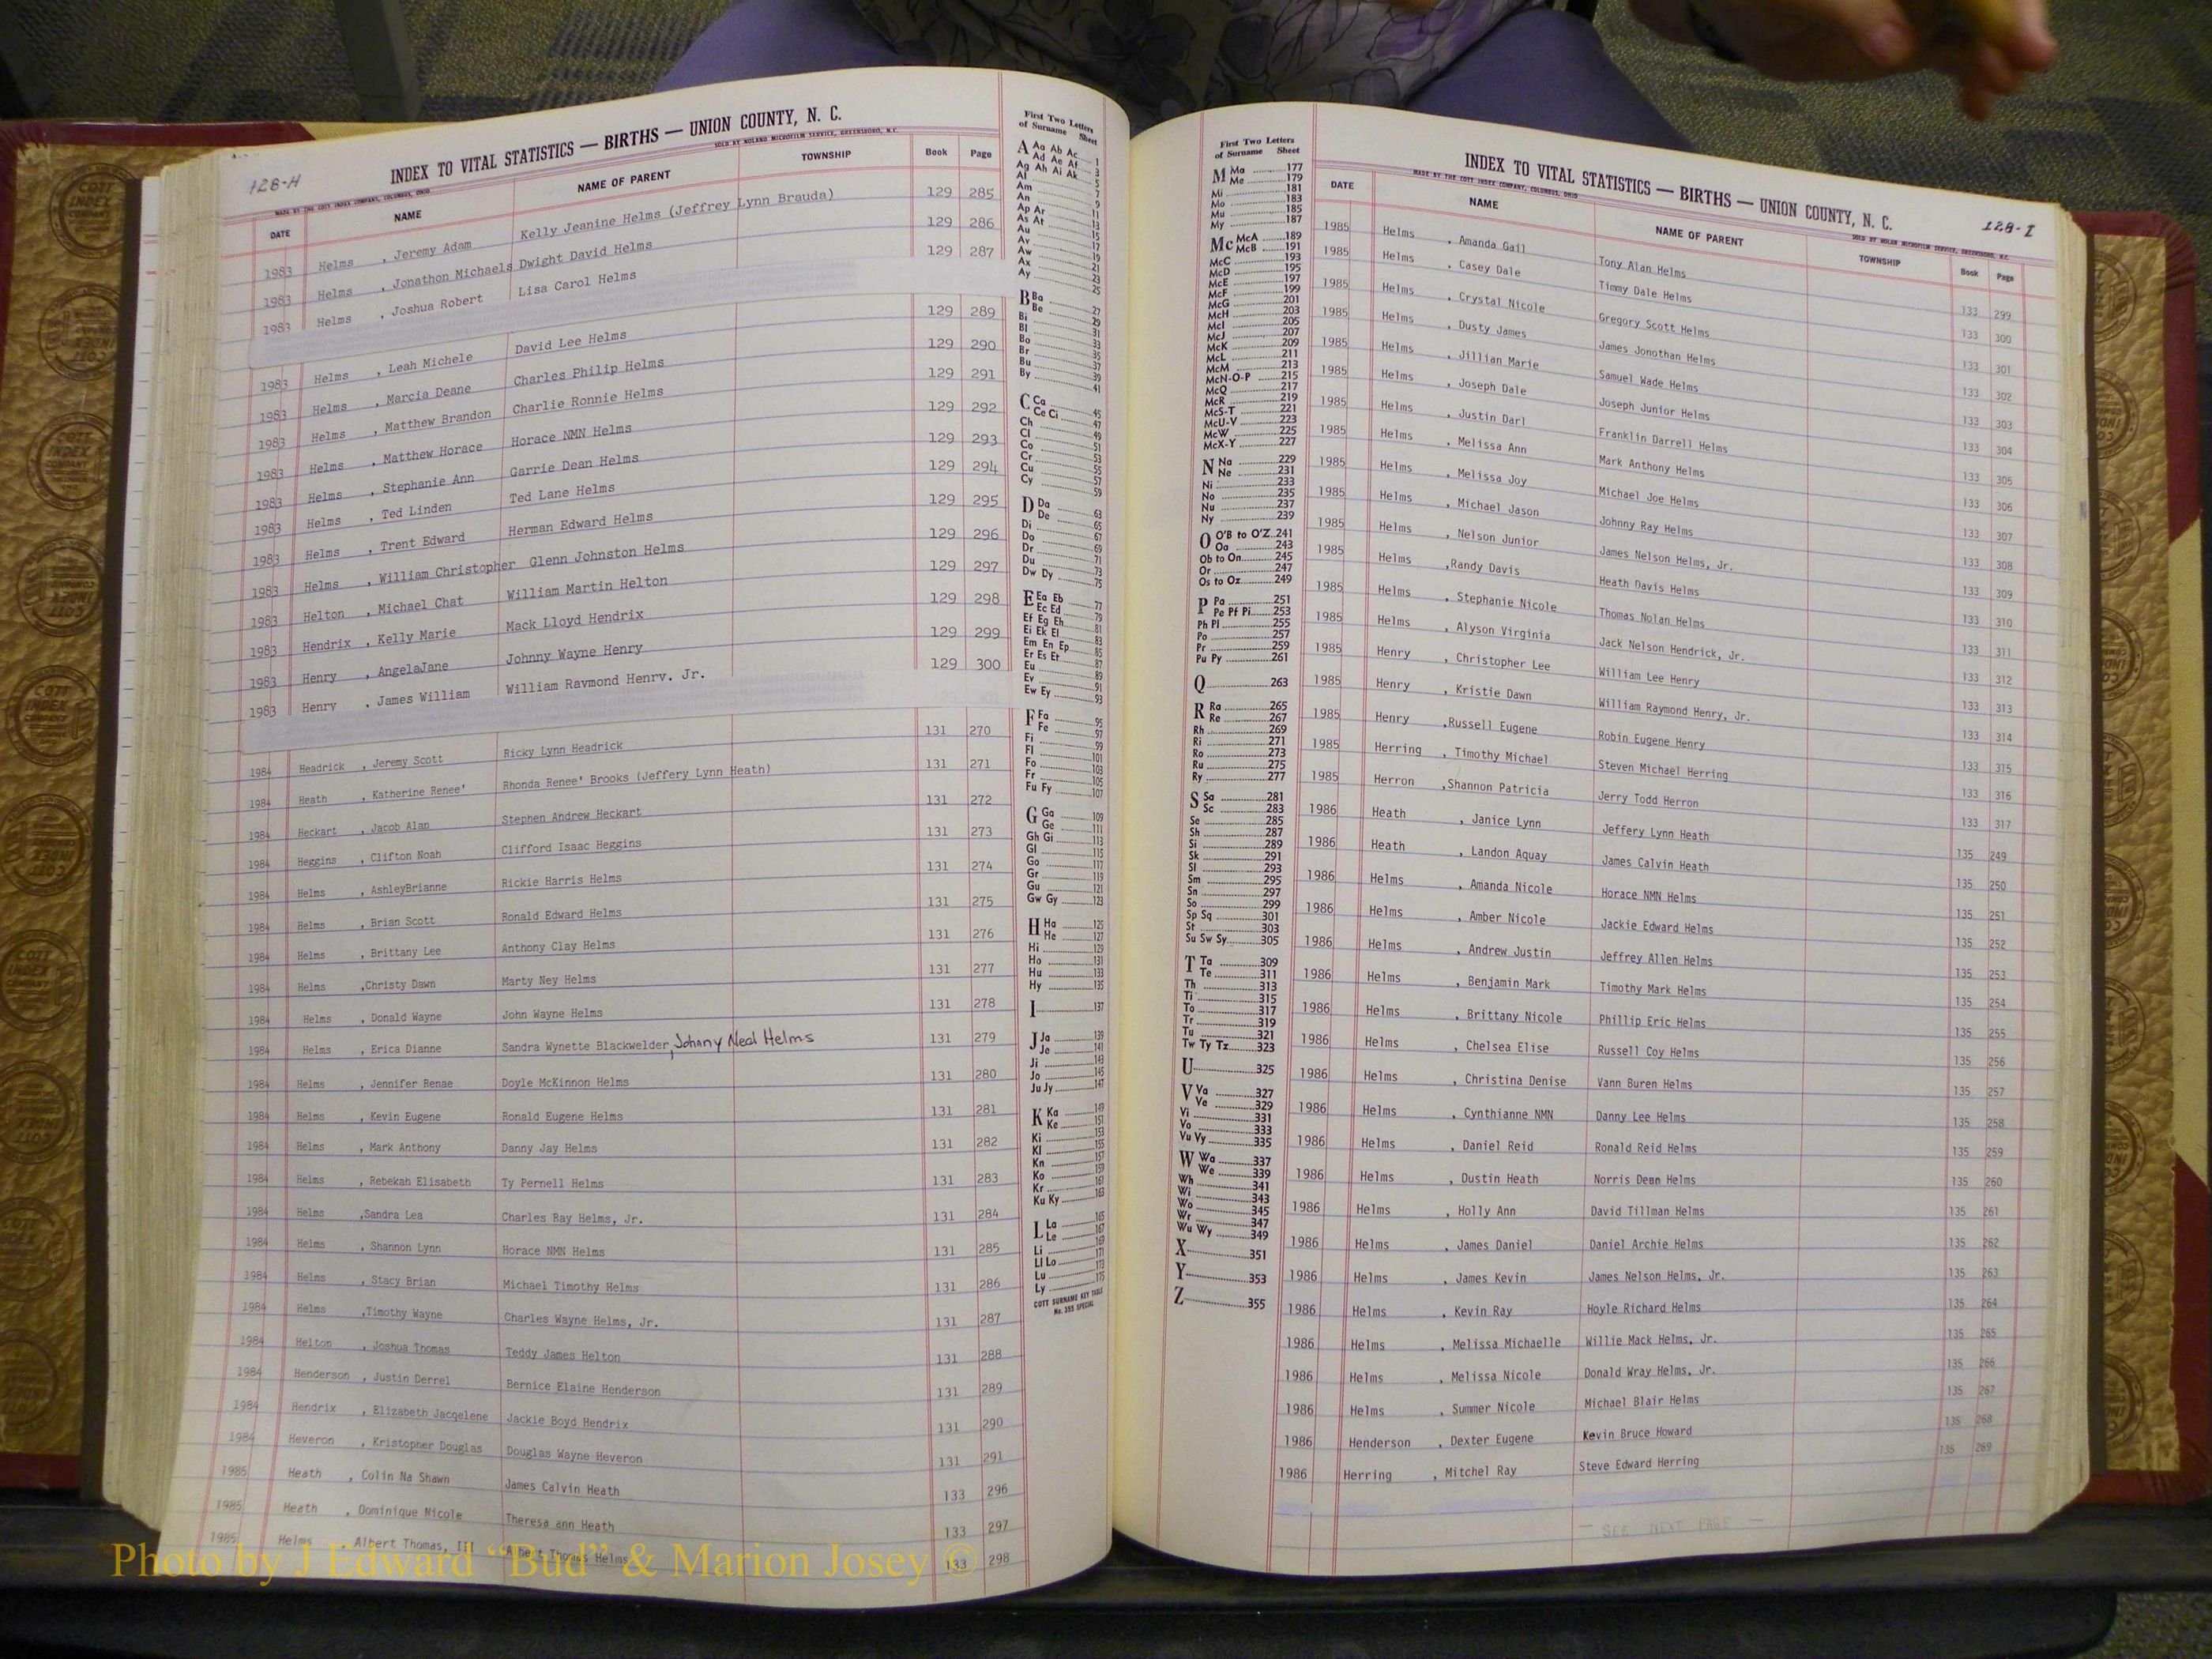 128-H
INDEX TO VITAL STATISTICS — BIRTHS — UNION COUNTY, N. C.
MADE BY THE COTT INDEX COMPANY, COLUMBUS, OHIO
SOLD BY NOLAND MICROFILM SERVICE, GREENSBORO, N.C.
DATE NAME NAME OF PARENT TOWNSHIP Book Page
1983 Helms , Jeremy Adam Kelly Jeanine Helms (Jeffrey Lynn Brauda) 129 285
1983 Helms , Jonathon Michaels Dwight David Helms 129 286
1983 Helms , Joshua Robert Lisa Carol Helms 129 287
1983 Helms , Leah Michele David Lee Helms 129 289
1983 Helms , Marcia Deane Charles Philip Helms 129 290
1983 Helms , Matthew Brandon Charlie Ronnie Helms 129 291
1983 Helms , Matthew Horace Horace NMN Helms 129 292
1983 Helms , Stephanie Ann Garrie Dean Helms 129 293
1983 Helms , Ted Linden Ted Lane Helms 129 294
1983 Helms , Trent Edward Herman Edward Helms 129 295
1983 Helms , William Christopher Glenn Johnston Helms 129 296
1983 Helton , Michael Chat William Martin Helton 129 297
1983 Hendrix , Kelly Marie Mack Lloyd Hendrix 129 298
1983 Henry , AngelaJane Johnny Wayne Henry 129 299
1983 Henry , James William William Raymond Henry. Jr. 129 300
1984 Headrick , Jeremy Scott Ricky Lynn Headrick 131 270
1984 Heath , Katherine Renee' Rhonda Renee' Brooks (Jeffery Lynn Heath) 131 271
1984 Heckart , Jacob Alan Stephen Andrew Heckart 131 272
1984 Heggins , Clifton Noah Clifford Isaac Heggins 131 273
1984 Helms , AshleyBrianne Rickie Harris Helms 131 274
1984 Helms , Brian Scott Ronald Edward Helms 131 275
1984 Helms , Brittany Lee Anthony Clay Helms 131 276
1984 Helms ,Christy Dawn Marty Ney Helms 131 277
1984 Helms , Donald Wayne John Wayne Helms 131 278
1984 Helms , Erica Dianne Sandra Wynette Blackwelder, Johnny Neal Helms 131 279
1984 Helms , Jennifer Renae Doyle McKinnon Helms 131 280
1984 Helms , Kevin Eugene Ronald Eugene Helms 131 281
1984 Helms , Mark Anthony Danny Jay Helms 131 282
1984 Helms , Rebekah Elisabeth Ty Pernell Helms 131 283
1984 Helms ,Sandra Lea Charles Ray Helms, Jr. 131 284
1984 Helms , Shannon Lynn Horace NMN Helms 131 285
1984 Helms , Stacy Brian Michael Timothy Helms 131 286
1984 Helms ,Timothy Wayne Charles Wayne Helms, Jr. 131 287
1984 Helton , Joshua Thomas Teddy James Helton 131 288
1984 Henderson , Justin Derrel Bernice Elaine Henderson 131 289
1984 Hendrix , Elizabeth Jacqelene Jackie Boyd Hendrix 131 290
1984 Heveron , Kristopher Douglas Douglas Wayne Heveron 131 291
1985 Heath , Colin Na Shawn James Calvin Heath 133 296
1985 Heath , Dominique Nicole Theresa ann Heath 133 297
1985 Helms , Albert Thomas, II Albert Thomas Helms 133 298
First Two Letters
of Surname Sheet
A Aa Ab Ac 1
Ad Ae Af 3
Ag Ah Ai Ak 5
Al 7
Am 9
An 11
Ap Ar 13
As At 15
Au 17
Av 19
Aw 21
Ax 23
Ay 25
B Ba 27
Be 29
Bi 31
Bl 33
Bo 35
Br 37
Bu 39
By 41
C Ca 45
Ce Ci 47
Ch 49
Cl 51
Co 53
Cr 55
Cu 57
Cy 59
D Da 63
De 65
Di 67
Do 69
Dr 71
Du 73
Dw Dy 75
E Ea Eb 77
Ec Ed 79
Ef Eg Eh 81
Ei Ek El 83
Em En Ep 85
Er Es Et 87
Eu 89
Ev 91
Ew Ey 93
F Fa 95
Fe 97
Fi 99
Fl 101
Fo 103
Fr 105
Fu Fy 107
G Ga 109
Ge 111
Gh Gi 113
Gl 115
Go 117
Gr 119
Gu 121
Gw Gy 123
H Ha 125
He 127
Hi 129
Ho 131
Hu 133
Hy 135
I 137
J Ja 139
Je 141
Ji 143
Jo 145
Ju Jy 147
K Ka 149
Ke 151
Ki 153
Kl 155
Kn 157
Ko 159
Kr 161
Ku Ky 163
L La 165
Le 167
Li 169
Ll Lo 171
Lu 173
Ly 175
COTT SURNAME KEY TABLE
No. 355 SPECIAL
First Two Letters
of Surname Sheet
M Ma 177
Me 179
Mi 181
Mo 183
Mu 185
My 187
Mc McA 189
McB 191
McC 193
McD 195
McE 197
McF 199
McG 201
McH 203
McI 205
McJ 207
McK 209
McL 211
McM 213
McN-O-P 215
McQ 217
McR 219
McS-T 221
McU-V 223
McW 225
McX-Y 227
N Na 229
Ne 231
Ni 233
No 235
Nu 237
Ny 239
O O'B to O'Z 241
Oa 243
Ob to On 245
Or 247
Os to Oz 249
P Pa 251
Pe Pf Pi 253
Ph Pl 255
Po 257
Pr 259
Pu Py 261
Q 263
R Ra 265
Re 267
Rh 269
Ri 271
Ro 273
Ru 275
Ry 277
S Sa 281
Sc 283
Se 285
Sh 287
Si 289
Sk 291
Sl 293
Sm 295
Sn 297
So 299
Sp Sq 301
St 303
Su Sw Sy 305
T Ta 309
Te 311
Th 313
Ti 315
To 317
Tr 319
Tu 321
Tw Ty Tz 323
U 325
V Va 327
Ve 329
Vi 331
Vo 333
Vu Vy 335
W Wa 337
We 339
Wh 341
Wi 343
Wo 345
Wr 347
Wu Wy 349
X 351
Y 353
Z 355
INDEX TO VITAL STATISTICS — BIRTHS — UNION COUNTY, N. C.
128-I
MADE BY THE COTT INDEX COMPANY, COLUMBUS, OHIO
SOLD BY NOLAN MICROFILM SERVICE, GREENSBORO, N.C.
DATE NAME NAME OF PARENT TOWNSHIP Book Page
1985 Helms , Amanda Gail Tony Alan Helms 133 299
1985 Helms , Casey Dale Timmy Dale Helms 133 300
1985 Helms , Crystal Nicole Gregory Scott Helms 133 301
1985 Helms , Dusty James James Jonothan Helms 133 302
1985 Helms , Jillian Marie Samuel Wade Helms 133 303
1985 Helms , Joseph Dale Joseph Junior Helms 133 304
1985 Helms , Justin Darl Franklin Darrell Helms 133 305
1985 Helms , Melissa Ann Mark Anthony Helms 133 306
1985 Helms , Melissa Joy Michael Joe Helms 133 307
1985 Helms , Michael Jason Johnny Ray Helms 133 308
1985 Helms , Nelson Junior James Nelson Helms, Jr. 133 309
1985 Helms ,Randy Davis Heath Davis Helms 133 310
1985 Helms , Stephanie Nicole Thomas Nolan Helms 133 311
1985 Helms , Alyson Virginia Jack Nelson Hendrick, Jr. 133 312
1985 Henry , Christopher Lee William Lee Henry 133 313
1985 Henry , Kristie Dawn William Raymond Henry, Jr. 133 314
1985 Henry ,Russell Eugene Robin Eugene Henry 133 315
1985 Herring , Timothy Michael Steven Michael Herring 133 316
1985 Herron ,Shannon Patricia Jerry Todd Herron 133 317
1986 Heath , Janice Lynn Jeffery Lynn Heath 135 249
1986 Heath , Landon Aquay James Calvin Heath 135 250
1986 Helms , Amanda Nicole Horace NMN Helms 135 251
1986 Helms , Amber Nicole Jackie Edward Helms 135 252
1986 Helms , Andrew Justin Jeffrey Allen Helms 135 253
1986 Helms , Benjamin Mark Timothy Mark Helms 135 254
1986 Helms , Brittany Nicole Phillip Eric Helms 135 255
1986 Helms , Chelsea Elise Russell Coy Helms 135 256
1986 Helms , Christina Denise Vann Buren Helms 135 257
1986 Helms , Cynthianne NMN Danny Lee Helms 135 258
1986 Helms , Daniel Reid Ronald Reid Helms 135 259
1986 Helms , Dustin Heath Norris Dean Helms 135 260
1986 Helms , Holly Ann David Tillman Helms 135 261
1986 Helms , James Daniel Daniel Archie Helms 135 262
1986 Helms , James Kevin James Nelson Helms, Jr. 135 263
1986 Helms , Kevin Ray Hoyle Richard Helms 135 264
1986 Helms , Melissa Michaelle Willie Mack Helms, Jr. 135 265
1986 Helms , Melissa Nicole Donald Wray Helms, Jr. 135 266
1986 Helms , Summer Nicole Michael Blair Helms 135 267
1986 Henderson , Dexter Eugene Kevin Bruce Howard 135 268
1986 Herring , Mitchel Ray Steve Edward Herring 135 269
— SEE NEXT PAGE —
Photo by J Edward “Bud” & Marion Josey ©